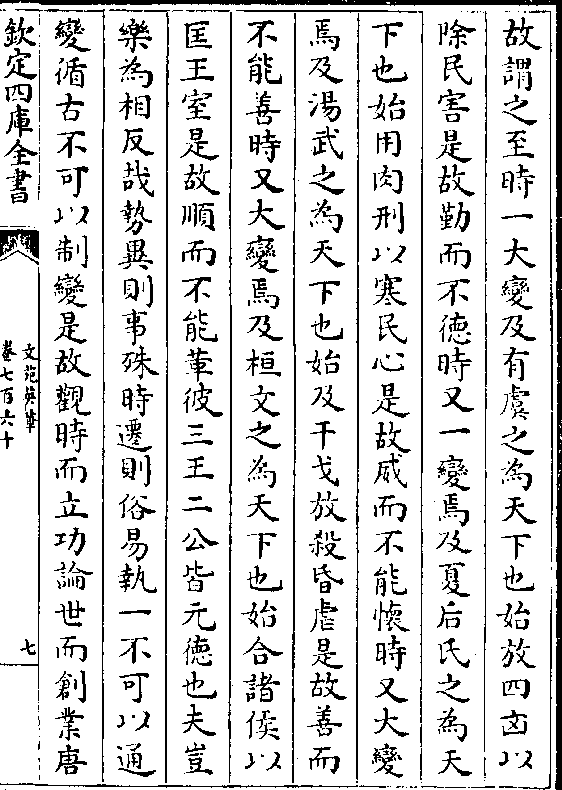 故謂之至時一大變及有虞之為天下也始放四凶以
除民害是故勤而不徳時又一變焉及夏后氏之為天
下也始用肉刑以塞民心是故威而不能懷時又大變
焉及湯武之為天下也始及干戈放殺昏虐是故善而
不能善時又大變焉及桓文之為天下也始合諸侯以
匡王室是故順而不能革彼三王二公皆元徳也夫豈
樂為相反哉勢異則事殊時遷則俗易執一不可以通
變循古不可以制變是故觀時而立功論世而創業唐
欽定四庫全書
文苑英華
卷七百六十
七